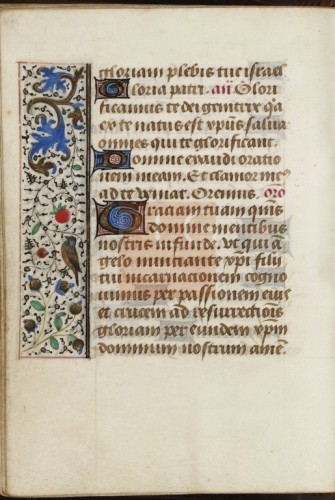 gloriam plebis tue israel
Gloria patri. añ Glori
ficamus te dei genitrix q̃a
ex te natus est xp̃us salua
omnes qui te glorificant.
Domine exaudi oratio
nem meam. Et clamor me⁹
ad te veniat. Oremus. oro
Graciam tuam q̃uis
domine mentibus
nostris infunde. vt qui ā
gelo nunciante xpi filij
tui incarnacionem cogno
uimus per passionem eius
et crucem ad resurrectiõis
gloriam per eundem xpm
dominum nostrum amē.